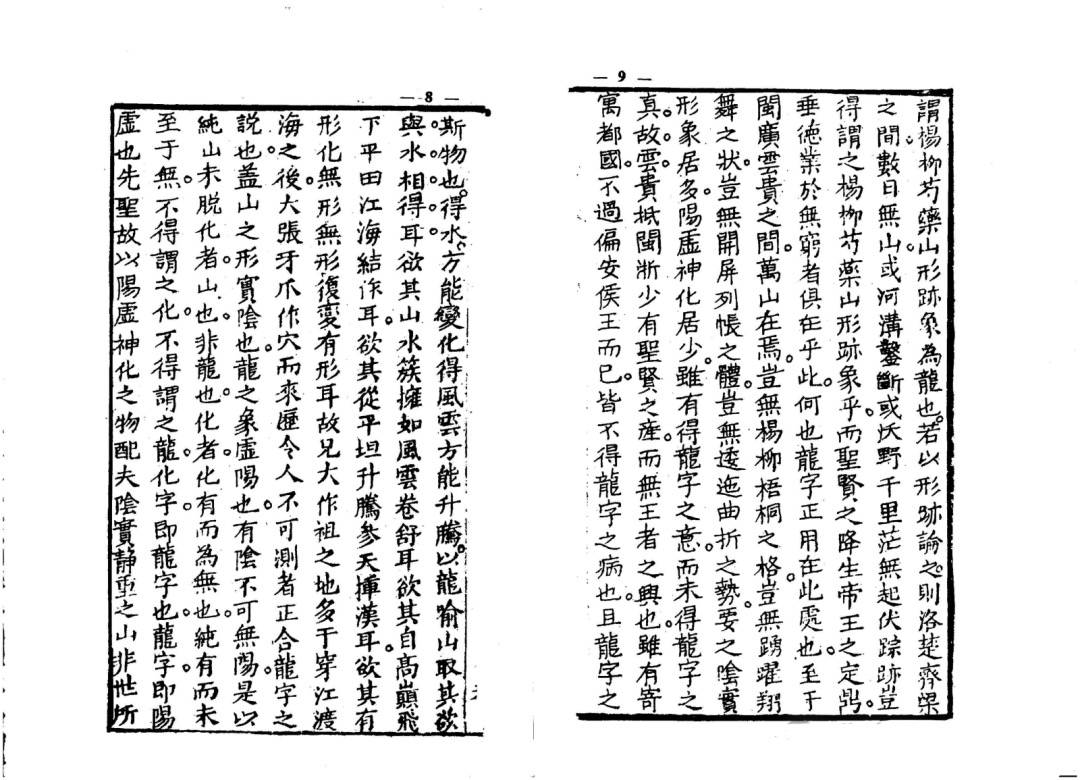 — 8 —
斯物也。得水。方能變化得風雲方能升騰。以龍喻山取其欲
與水相得耳欲其山水簇擁如風雲卷舒耳欲其自高巔飛
下平田江海結作耳欲其從平坦升騰參天揮漢耳。欲其有
形化無形無形復變有形耳故凡大作祖之地多于穿江渡
海之後大張牙爪作穴而來歷令人不可測者正合龍字之
説也。蓋山之形實陰也。龍之象虛陽也。有陰不可無陽。是以
純山未脫化者。山也。非龍也。化者。化有而為無也。純有而未
至于無。不得謂之化。不得謂之龍。化字即龍字也。龍字。即陽
虛也先聖故以陽虛神化之物配夫陰實靜重之山非世所
— 9 —
謂楊柳芍藥山形跡象為龍也。若以形跡論之。則洛楚齊梁
之間數日無山。或河溝鑿斷或沃野千里茫無起伏踪跡豈
得謂之楊柳芍藥山形跡象乎。而聖賢之降生帝王之定鼎。
垂德業於無窮者俱在乎此。何也龍字正用在此處也。至于
閩廣雲貴之間。萬山在焉。豈無楊柳梧桐之格。豈無踴躍翔
舞之狀。豈無開屏列帳之體。豈無逶迤曲折之勢。要之陰實
形象居多。陽虛神化居少。雖有得龍字之意。而未得龍字之
真。故雲貴抵閩浙少有聖賢之產。而無王者之興也。雖有寄
寓都國。不過偏安侯王而已。皆不得龍字之病也。且龍字之